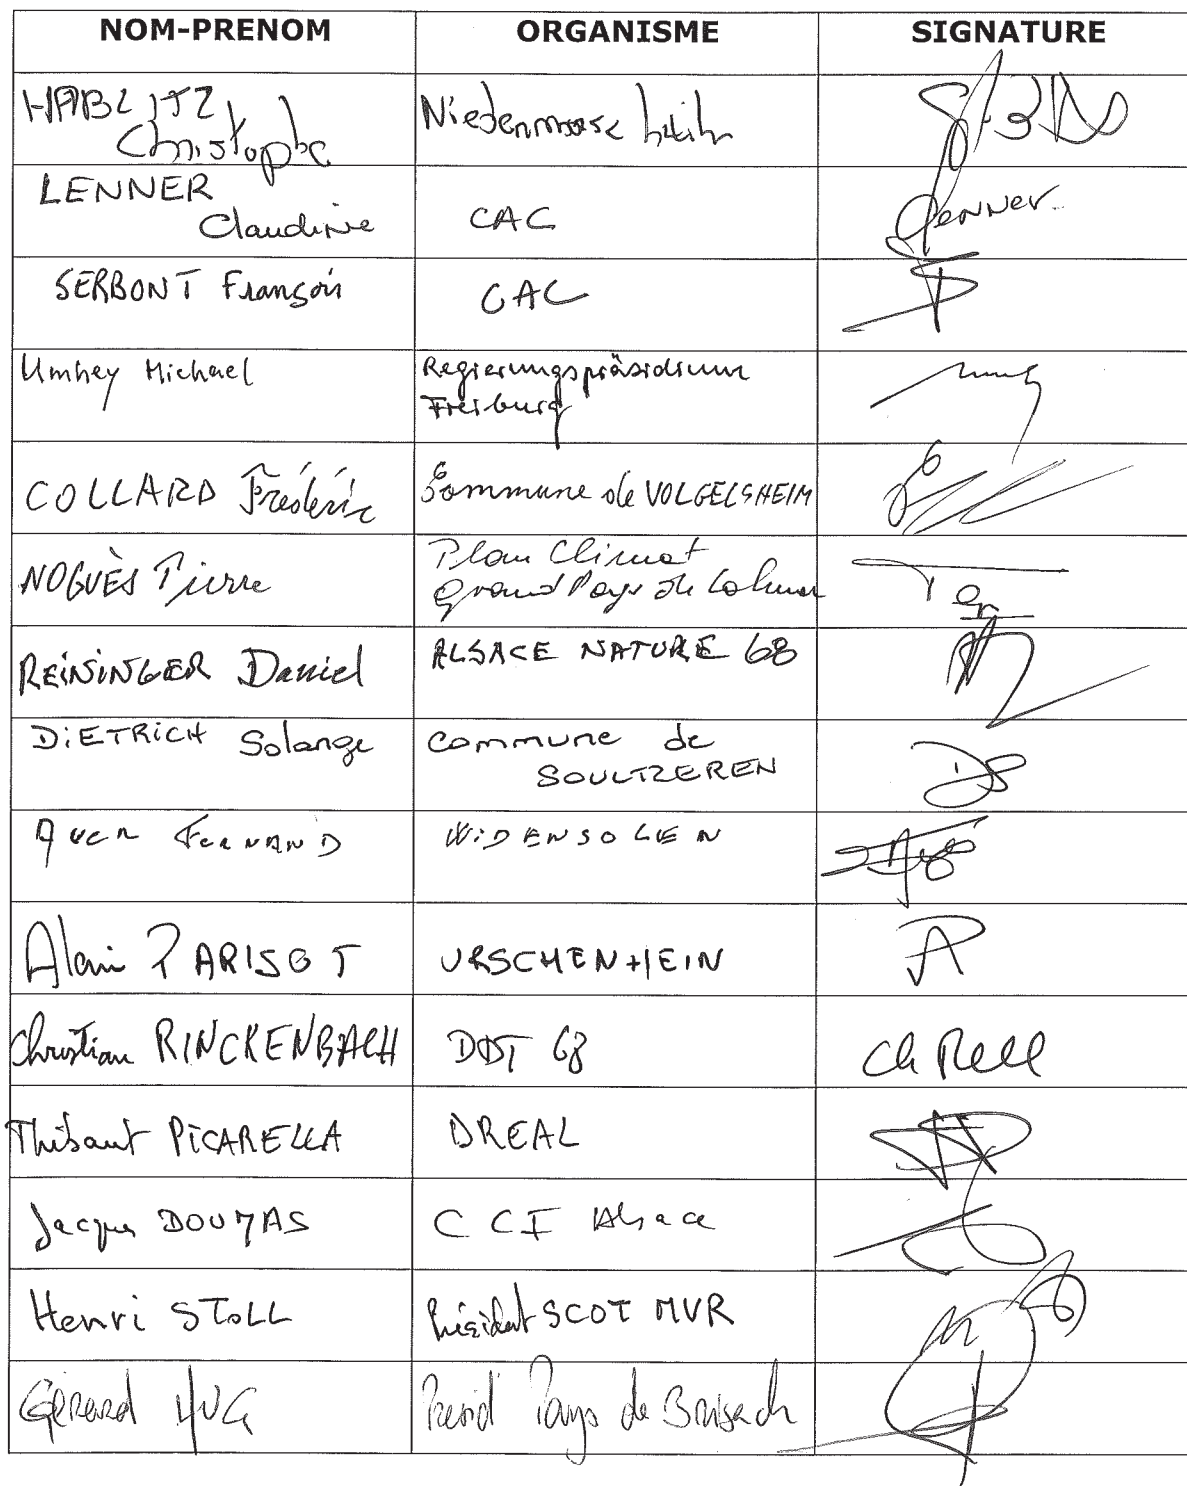 NOM-PRENOM ORGANISME SIGNATURE
HABLITZ
Christophe
LENNER
Claudine CAC Lenner
SERBONT François CAC
Umhey Michael Regierungspräsidium
Freiburg
COLLARD Frédéric Commune de VOLGELSHEIM
NOGUÈS Pierre Plan Climat
Grand Pays de Colmar
REiNiNGER Daniel ALSACE NATURE 68
DiETRICH Solange Commune de
SOULTZEREN DS
FERNAND WiDENSOLEN
Alain PARISOT URSCHENHEIN
Christian RINCKENBACH DDT 68
Thibaut PiCARELLA DREAL
Jacques DOUMAS CCI Alsace
Henri STOLL Président SCOT MVR
Gérard HUG Présid Pays de Brisach